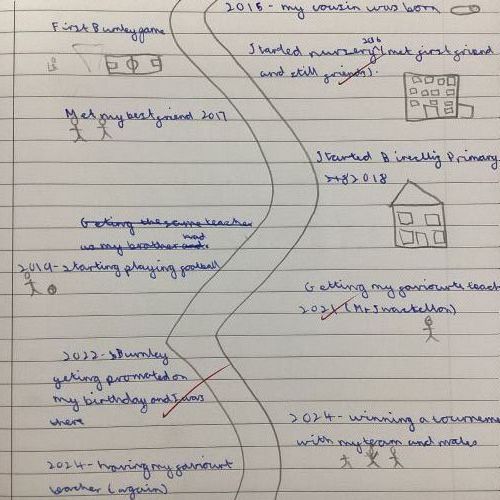 2015 - my cousin was born
First Burnley game
2016
Started nursery (met first friend
and still friends).
Met my best friend 2017
Started Primary
2018
Geting the same teacher
as my brother and had
2019 - starting playing football
Getting my favourite teach
2021 (Mr
2022 - Burnley
geting promoted on
my birthday and I was
there
2024 - winning a tourneme
with my team and mates
2024 - having my favourt
teacher (again)